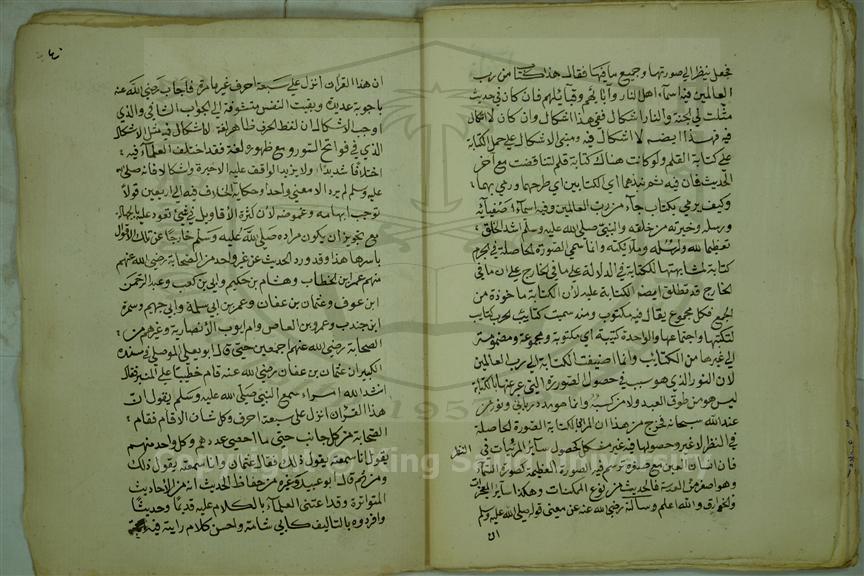 فجعل ينظر الى صورتها وجميع ما فيها فقال هذا كتاب من رب
العالمين فيه اسماء اهل النار وآبائهم وقبائلهم فان كان في حديث
مثلت لي الجنة والنار اشكال ففي هذا اشكال وان كان لا اشكال
فيه فهذا ايضا لا اشكال فيه ومبنى الاشكال على حمل الكتابة
على كتابة القلم ولو كانت هناك كتابة قلم لتناقضت مع آخر
الحديث فان فيه ثم نبذهما اي الكتابين اي طرحهما ورمى بهما
وكيف يرمي بكتاب جاء من رب العالمين وفيه اسماء اصفيائه
ورسله وخيرته من خلقه والنبي صلى الله عليه وسلم اشد الخلق
تعظيما لله ولرسله وملائكته وانما سمى الصورة الحاصلة في الجرم
كتابة لمشابهتها للكتابة في الدلالة على ما في الخارج على ان ما في
الخارج قد تطلق ايضا الكتابة عليه لان الكتابة ماخوذة من
الجمع فكل مجموع يقال فيه مكتوب ومنه سميت كتايب الحرب كتايب
لتكتبها واجتماعها والواحدة كتيبة اي مكتوبة ومجموعة ومضمومة
الى غيرها من الكتايب وانما اضيفت الكتابة الى رب العالمين
لان النور الذي هو سبب في حصول الصورة التي عبر عنها بالكتابة
ليس هو من طوق العبد ولا من كسبه وانما هو مدد رباني ونور من
عند الله سبحانه فخرج من هذا ان المراد بالكتابة الصورة الحاصلة
في النظر لا غير وحصولها فيه غير مشكل كحصول سائر المرئيات في النظر
فان انسان العين مع صغره ترتسم فيه الصورة العظيمة كصورة السماء
وهو اصغر من العدسة فالحديث من نوع الممكنات وهكذا سائر المعجزات
والخوارق والله اعلم وسألته رضي الله عنه عن معنى قوله صلى الله عليه وسلم
ان
ان هذا القرآن انزل على سبعة احرف غير ما مرة فاجاب رضي الله عنه
باجوبة عديدة وبقيت النفس متشوقة الى الجواب الشافي والذي
اوجب الاشكال ان لفظ الحرف ظاهر لغة لا اشكال فيه مثل الاشكال
الذي في فواتح السور ومع ظهوره لغة فقد اختلف العلماء فيه
اختلافا شديدا ولا يزيد الواقف عليه الا حيرة واشكالا فانه صلى الله
عليه وسلم لم يرد الا معنى واحدا وحكاية الخلاف فيه الى اربعين قولا
توجب ابهامه وغموضه لان كثرة الاقاويل في شيء تعود عليه بالجهالة
مع تجويز ان يكون مراده صلى الله عليه وسلم خارجا عن تلك الاقوال
باسرها هذا وقد ورد الحديث عن غير واحد من الصحابة رضي الله عنهم
منهم عمر ابن الخطاب وهشام بن حكيم وابي بن كعب وعبد الرحمن
ابن عوف وعثمان بن عفان وعمر بن ابي سلمة وابي جهم وسمرة
ابن جندب وعمرو بن العاص وام ايوب الانصارية وغيرهم من
الصحابة رضي الله عنهم اجمعين حتى قال ابو يعلى الموصلي في مسنده
الكبير ان عثمان بن عفان رضي الله عنه قام خطيبا على المنبر فقال
انشد الله امراء سمع النبي صلى الله عليه وسلم يقول ان
هذا القرآن انزل على سبعة احرف وكل شاف الا قام فقام
الصحابة من كل جانب حتى ما احصى عددهم وكل واحد منهم
يقول انا سمعته يقول ذلك فقال عثمان وانا سمعته يقول ذلك
ومن ثم قال ابو عبيد وغيره من حفاظ الحديث انه من الاحاديث
المتواترة وقد اعتنى العلماء بالكلام عليه قديما وحديثا
وافردوه بالتاليف كابي شامة واحسن كلام رايته فيه
Copyright © King Saud University
1957